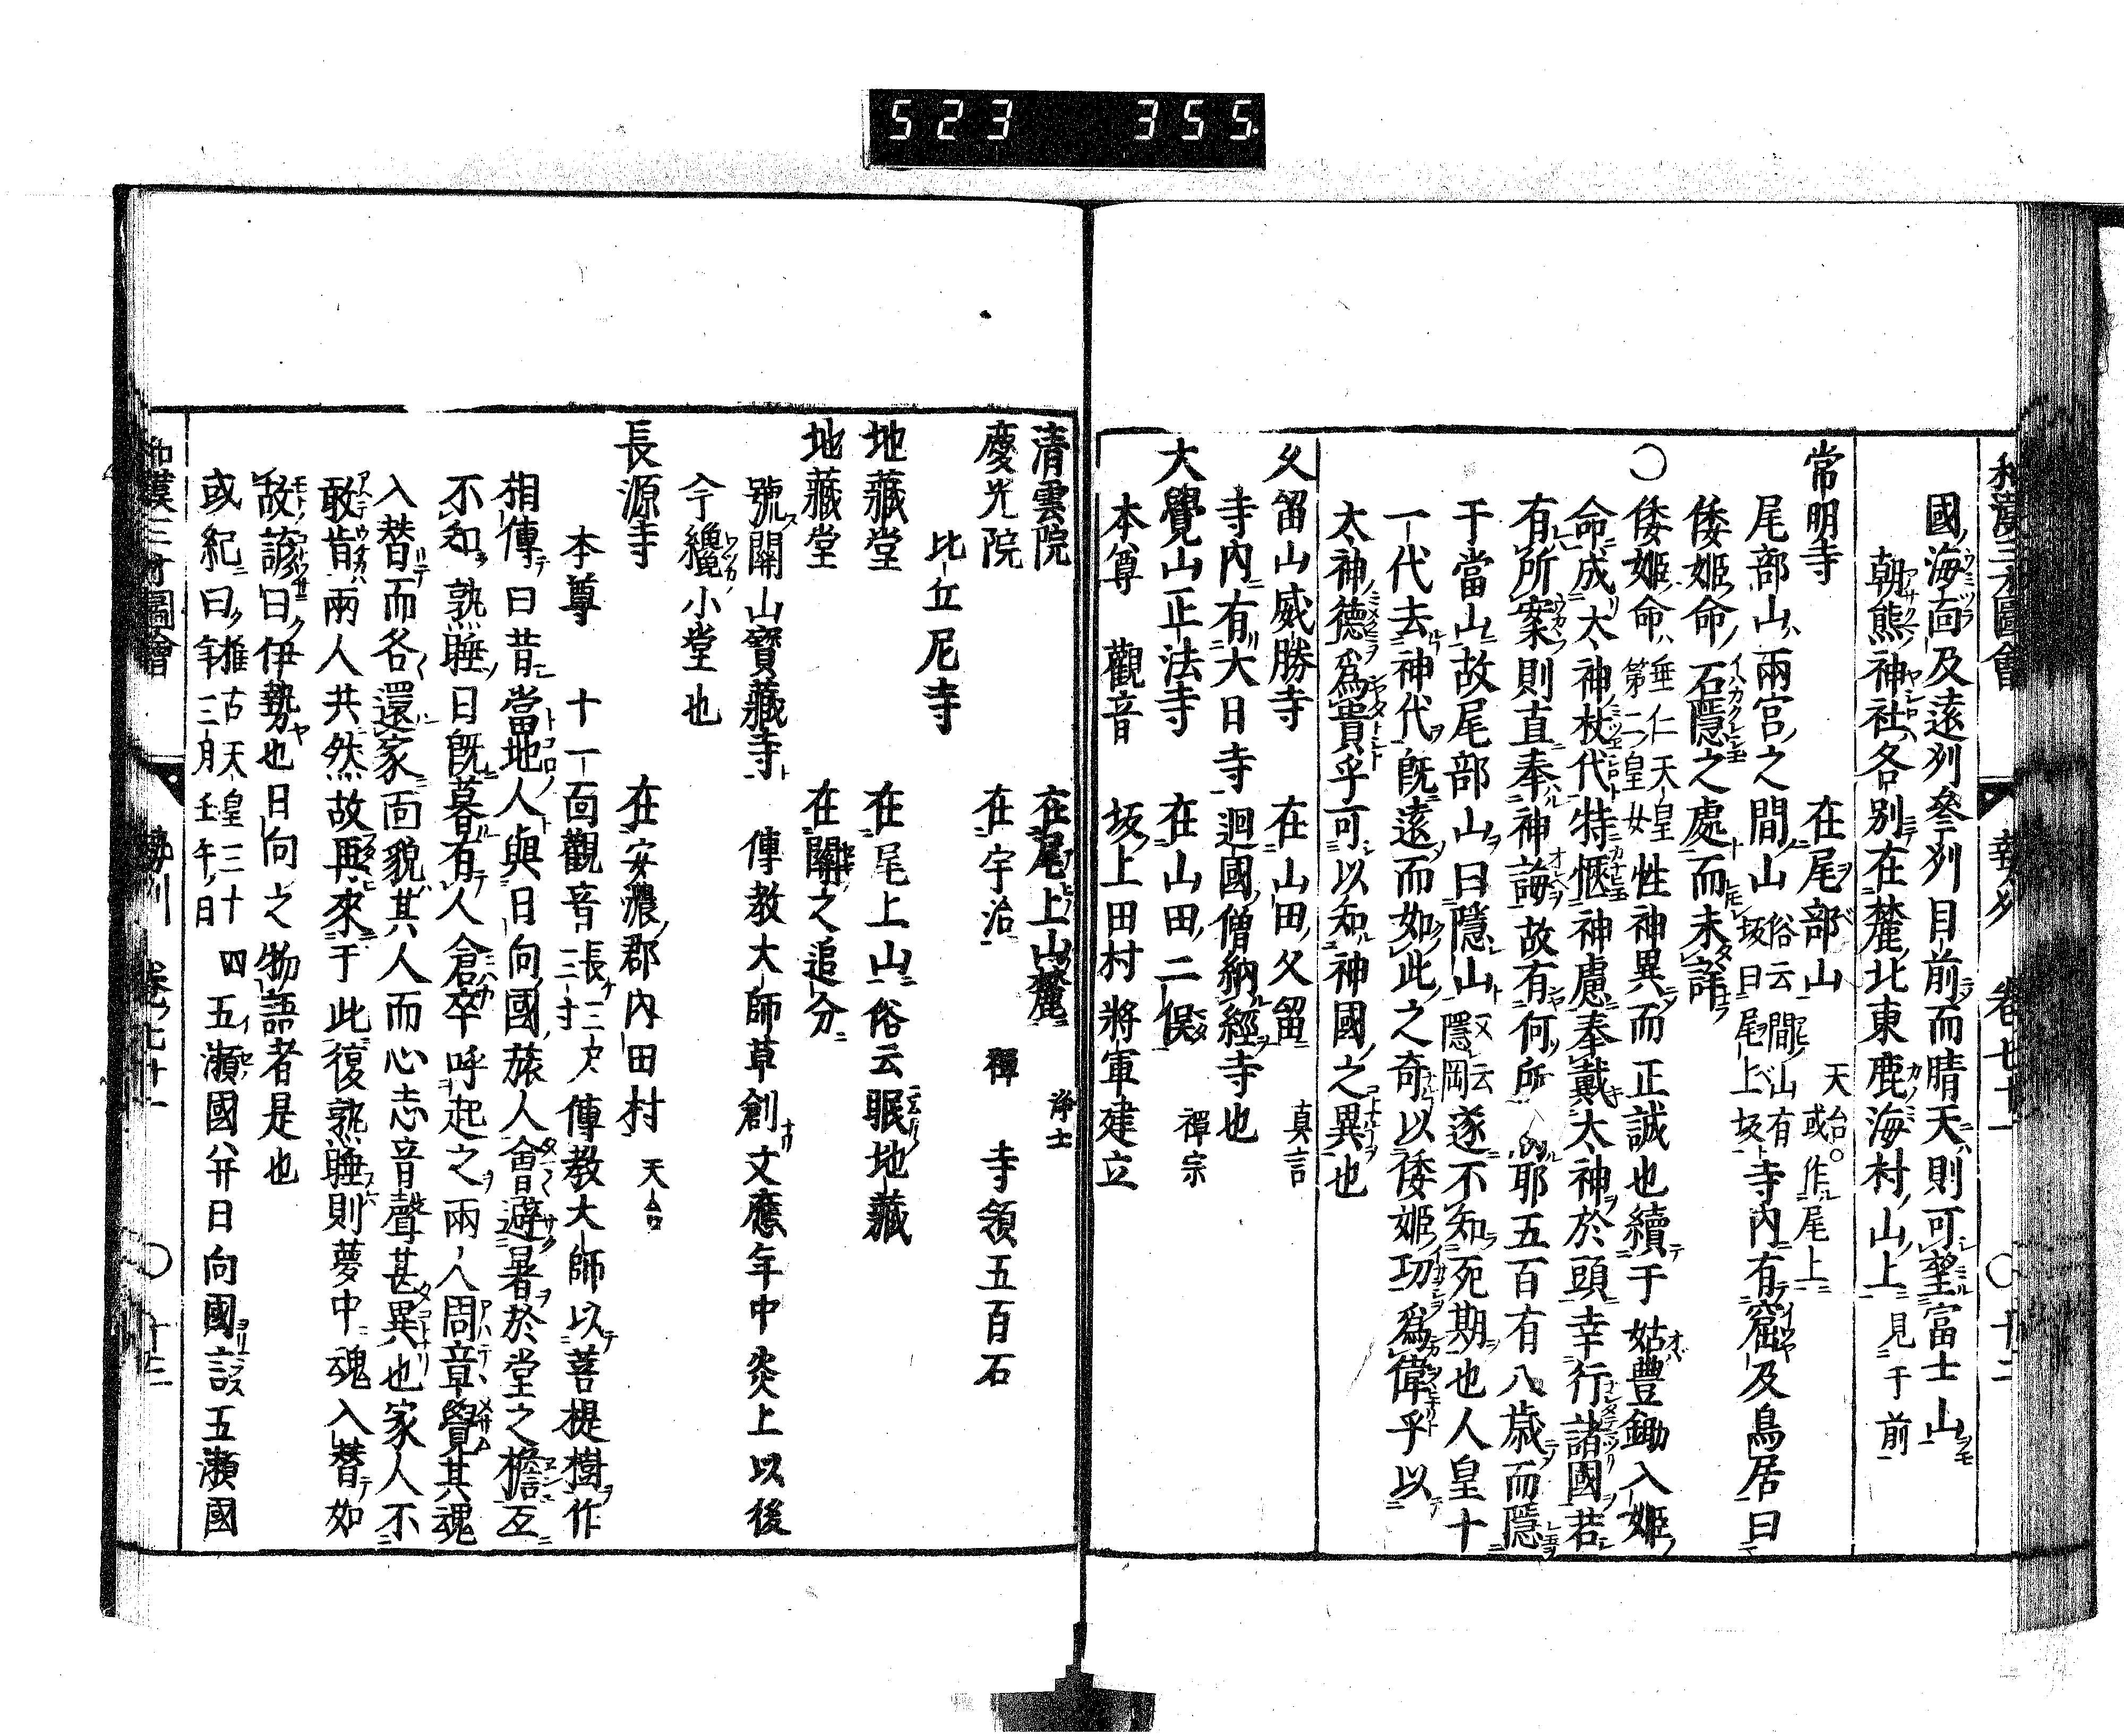 523 355
和漢三才圖會 勢州 卷七十一 ○十二
國海面及遠列參列目前而晴天則可望富士山
朝熊神社各別在麓北東鹿海村山上見于前
常明寺 在尾部山 天台。或作尾上
尾部山兩宮之間山俗云間山有坂曰尾上坂寺內有窟及鳥居曰
倭姬命石隱之處而未詳
○倭姬命垂仁天皇第二皇女性神異而正誠也續于姑豊鋤入姬
命成太神杖代特愜神慮奉戴太神於頭幸行諸國若
有所案則直奉神誨故有何所 耶五百有八歳而隱
于當山故尾部山曰隱山又云隱岡遂不知死期也人皇十
一代去神代既遠而如此之奇以倭姬功爲偉乎以
太神德爲貴乎可以知神國之異也
久留山威勝寺 在山田久留 真言
寺內有大日寺迴國僧納經寺也
大覺山正法寺 在山田二俣 禪宗
本尊 觀音 坂上田村將軍建立
清雲院 在尾上山麓 浄土
慶光院 在宇治 禪 寺領五百石
比丘尼寺
地藏堂 在尾上山俗云眠地藏
地藏堂 在關之追分
號關山寶藏寺 傳教大師草創文應年中炎上以後
今纔小堂也
長源寺 在安濃郡內田村 天台
本尊 十一面觀音長三尺三寸傳教大師以菩提樹作
相傳曰昔當地人與日向國旅人會避暑於堂之檐互
不知熟睡日既暮有人倉卒呼起之兩人周章覺其魂
入替而各還家面貌其人而心志音聲甚異也家人不
敢肯兩人共然故再來于此復熟睡則夢中魂入替如
故諺曰伊勢也日向之物語者是也
或紀曰推古天皇三十四年三月壬午日五瀬國幷日向國言五瀬國
和漢三才圖會 勢州 卷七十一 ○十二